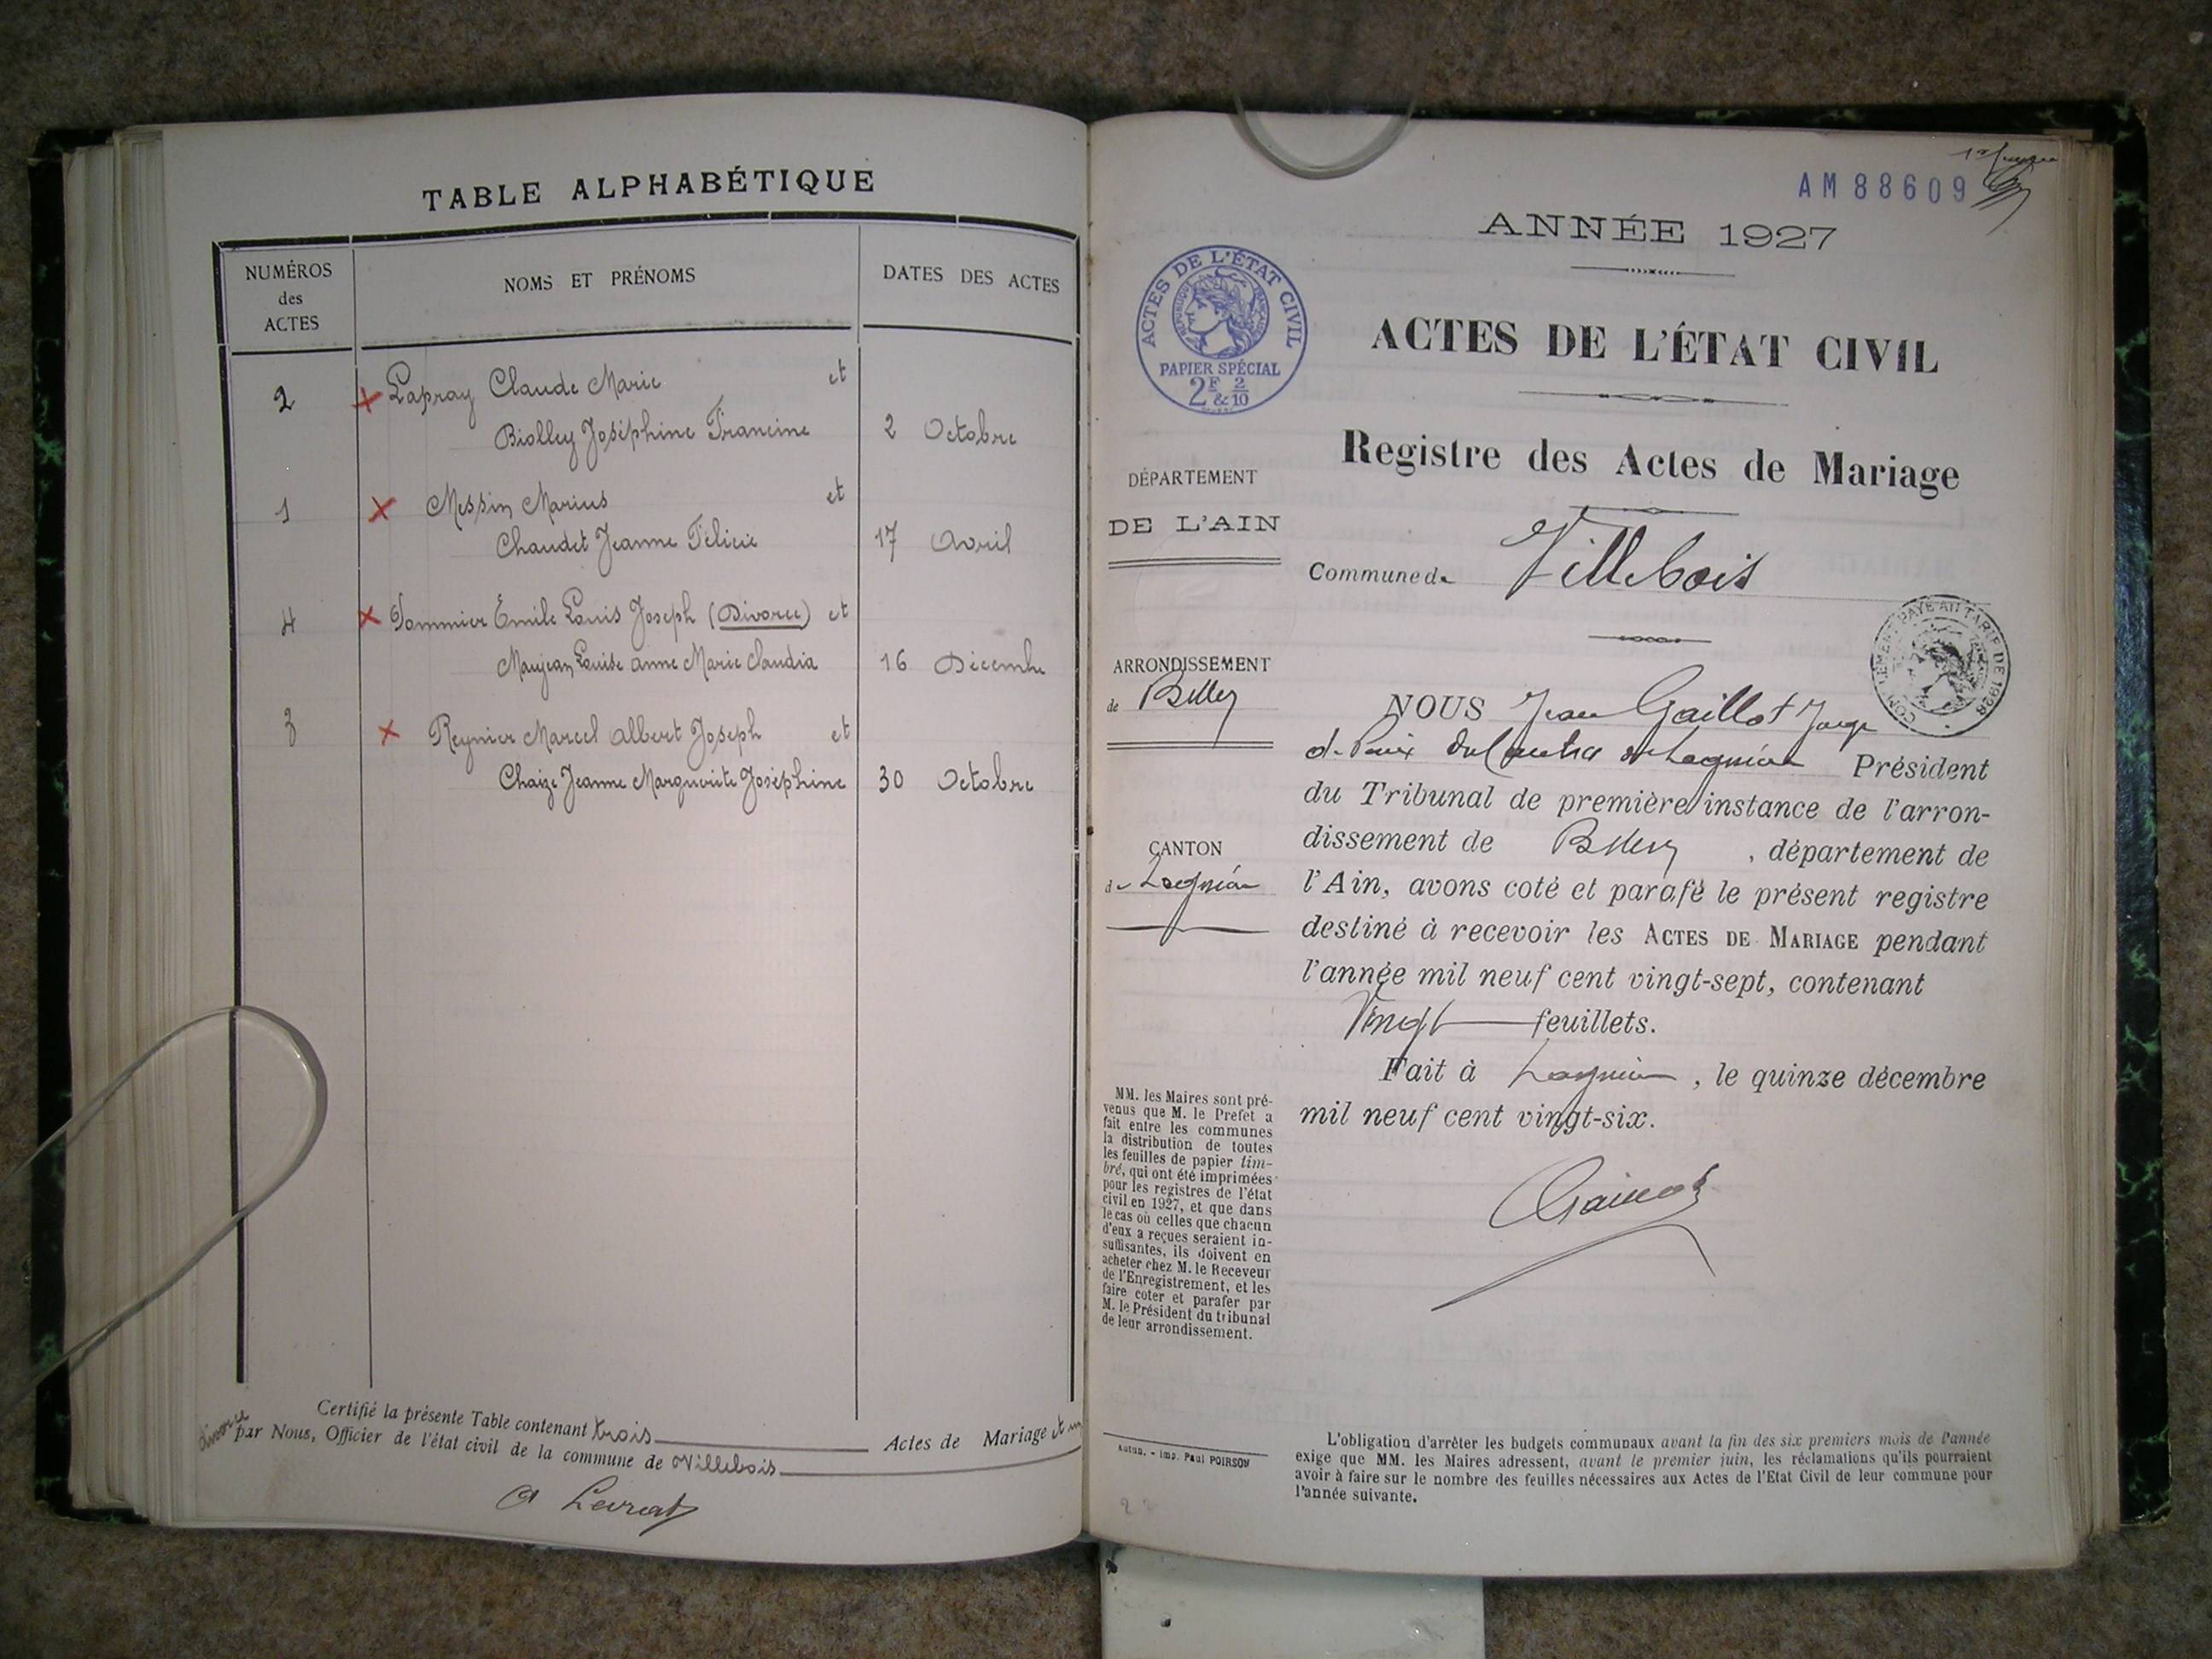 TABLE ALPHABÉTIQUE
NUMÉROS
des
ACTES
NOMS ET PRÉNOMS
DATES DES ACTES
2 Lapray Claude Marie et
Biolley Joséphine Francine 2 Octobre
1 Messin Marius et
Chaudet Jeanne Félicie 17 Avril
4 Pommier Émile Louis Joseph (Divorce) et
Maujean Louise Anne Marie Claudia 16 Décembre
3 Reynier Marcel Albert Joseph et
Chaize Jeanne Marguerite Joséphine 30 Octobre
Certifié la présente Table contenant trois Actes de Mariage et un
divorce par Nous, Officier de l'état civil de la commune de Villebois
AM 88609
ANNÉE 1927
ACTES DE L'ÉTAT CIVIL
RÉPUBLIQUE FRANÇAISE
PAPIER SPÉCIAL
2F & 2/10
ACTES DE L'ÉTAT CIVIL
Registre des Actes de Mariage
DÉPARTEMENT
DE L'AIN
Commune de Villebois
COMPLEMENT PAYE AU TARIF DE 1926
ARRONDISSEMENT
de Belley
CANTON
de Lagnieu
NOUS Jean Gaillot Juge
de Paix du Canton de Lagnieu Président
du Tribunal de première instance de l'arron-
dissement de Belley, département de
l'Ain, avons coté et parafé le présent registre
destiné à recevoir les ACTES DE MARIAGE pendant
l'année mil neuf cent vingt-sept, contenant
Vingt feuillets.
Fait à Lagnieu, le quinze décembre
mil neuf cent vingt-six.
MM. les Maires sont pré-
venus que M. le Prefet a
fait entre les communes
la distribution de toutes
les feuilles de papier tim-
bré, qui ont été imprimées
pour les registres de l'état
civil en 1927, et que dans
le cas où celles que chacun
d'eux a reçues seraient in-
suffisantes, ils doivent en
acheter chez M. le Receveur
de l'Enregistrement, et les
faire coter et parafer par
M. le Président du tribunal
de leur arrondissement.
Autun. - Imp. Paul POIRSON
L'obligation d'arrêter les budgets communaux avant la fin des six premiers mois de l'année
exige que MM. les Maires adressent, avant le premier juin, les réclamations qu'ils pourraient
avoir à faire sur le nombre des feuilles nécessaires aux Actes de l'Etat Civil de leur commune pour
l'année suivante.